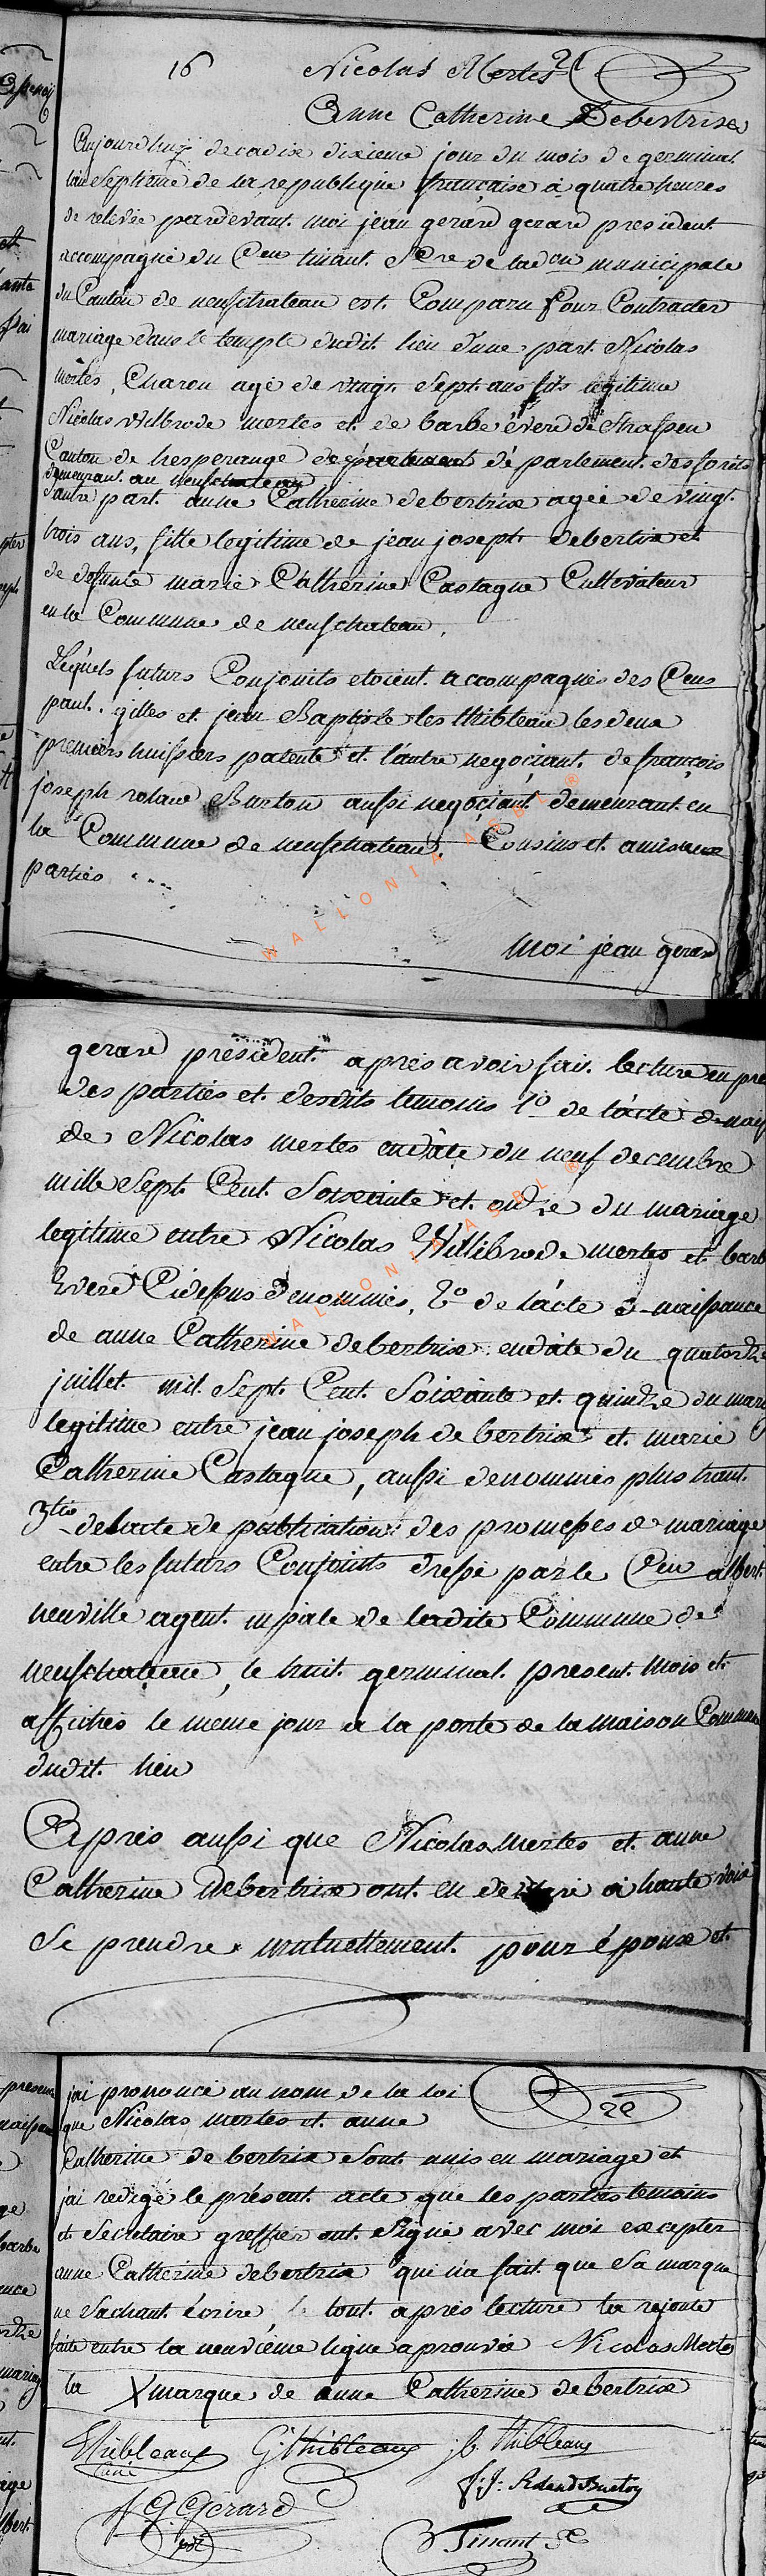 16 Nicolas Mertes et
Anne Catherine Debertrixe
Aujourdhuy decadix dixieme jour du mois de germinal
lan Septieme de la republique française à quatre heures
de relevée pardevant moi jean gerard gerard president
accompagné du Cen tinant Scre de ladon municipale
du Canton de neufchateau est Comparu pour Contracter
mariage dans le temple dudit lieu d'une part Nicolas
mertes, Charon agé de vingt Sept ans fils légitime
Nicolas Wilbrode mertes et de barbe évere de Strassen
Canton de hesperange departement dé parlement des forêts
demeurant au neufchateau
d'autre part anne Catherine debertrix agée de vingt
trois ans, fille legitime de jean joseph debertrix et
de defunte marie Catherine Castagne Cultivateur
en la Commune de neufchateau,
Lequels futurs Conjoints etoient accompagnés des Cens
paul, gilles et jean Baptiste les thibleau les deux
premiers huissiers patenté et l'autre negociant de françois
joseph roland Burton aussi negociant demeurant en
la Commune de neufchateau, Cousins et amis aux
parties
WALLONIA ASBL®
moi jean gerard
gerard président après avoir fait lecture en pre
des parties et desdits temoins 1o de l'acte de nais
de Nicolas mertes endâte du neuf decembre
mille Sept Cent Soixante et onze du mariage
legitime entre Nicolas Willibrode mertes et barb
Evere Cidessus denommés, 2o de l'acte d naissance
de anne Catherine debertrix endâte du quatorze
juillet mil Sept Cent Soixante et quinze du mari
legitime entre jean joseph de bertrix et marie
Catherine Castagne, aussi denommés plus haut
3tio de lacte de publication des promesses de mariage
entre les futurs Conjoints dressé par le Cen albert
neuville agent mpale de ladite Commune de
neufchateau, le huit germinal present mois et
affichés le meme jour a la porte de la maison Commune
dudit lieu
WALLONIA ASBL®
Après aussi que Nicolas Mertes et anne
Catherine Debertrix ont eu declaré à haute voix
Se prendre mutuellement pour époux et
jai prononcé au nom de la loi
que Nicolas mertes et anne
Catherine de bertrix Sont unis en mariage et
j'ai redigé le présent acte que les parties temoins
et Secretaire greffier ont Signé avec moi excepter
anne Catherine debertrix qui n'a fait que Sa marque
ne Sachant écrire, le tout après lecture la rejoute
faite entre la neuvième ligne aprouvée Nicolas Mertes
la X marque de anne Catherine de bertrix
Thibleaux G Thibleaux jb thibleaux
ainé
f: j: Roland Burton
J G Gerard
pdt
Tinant Sre